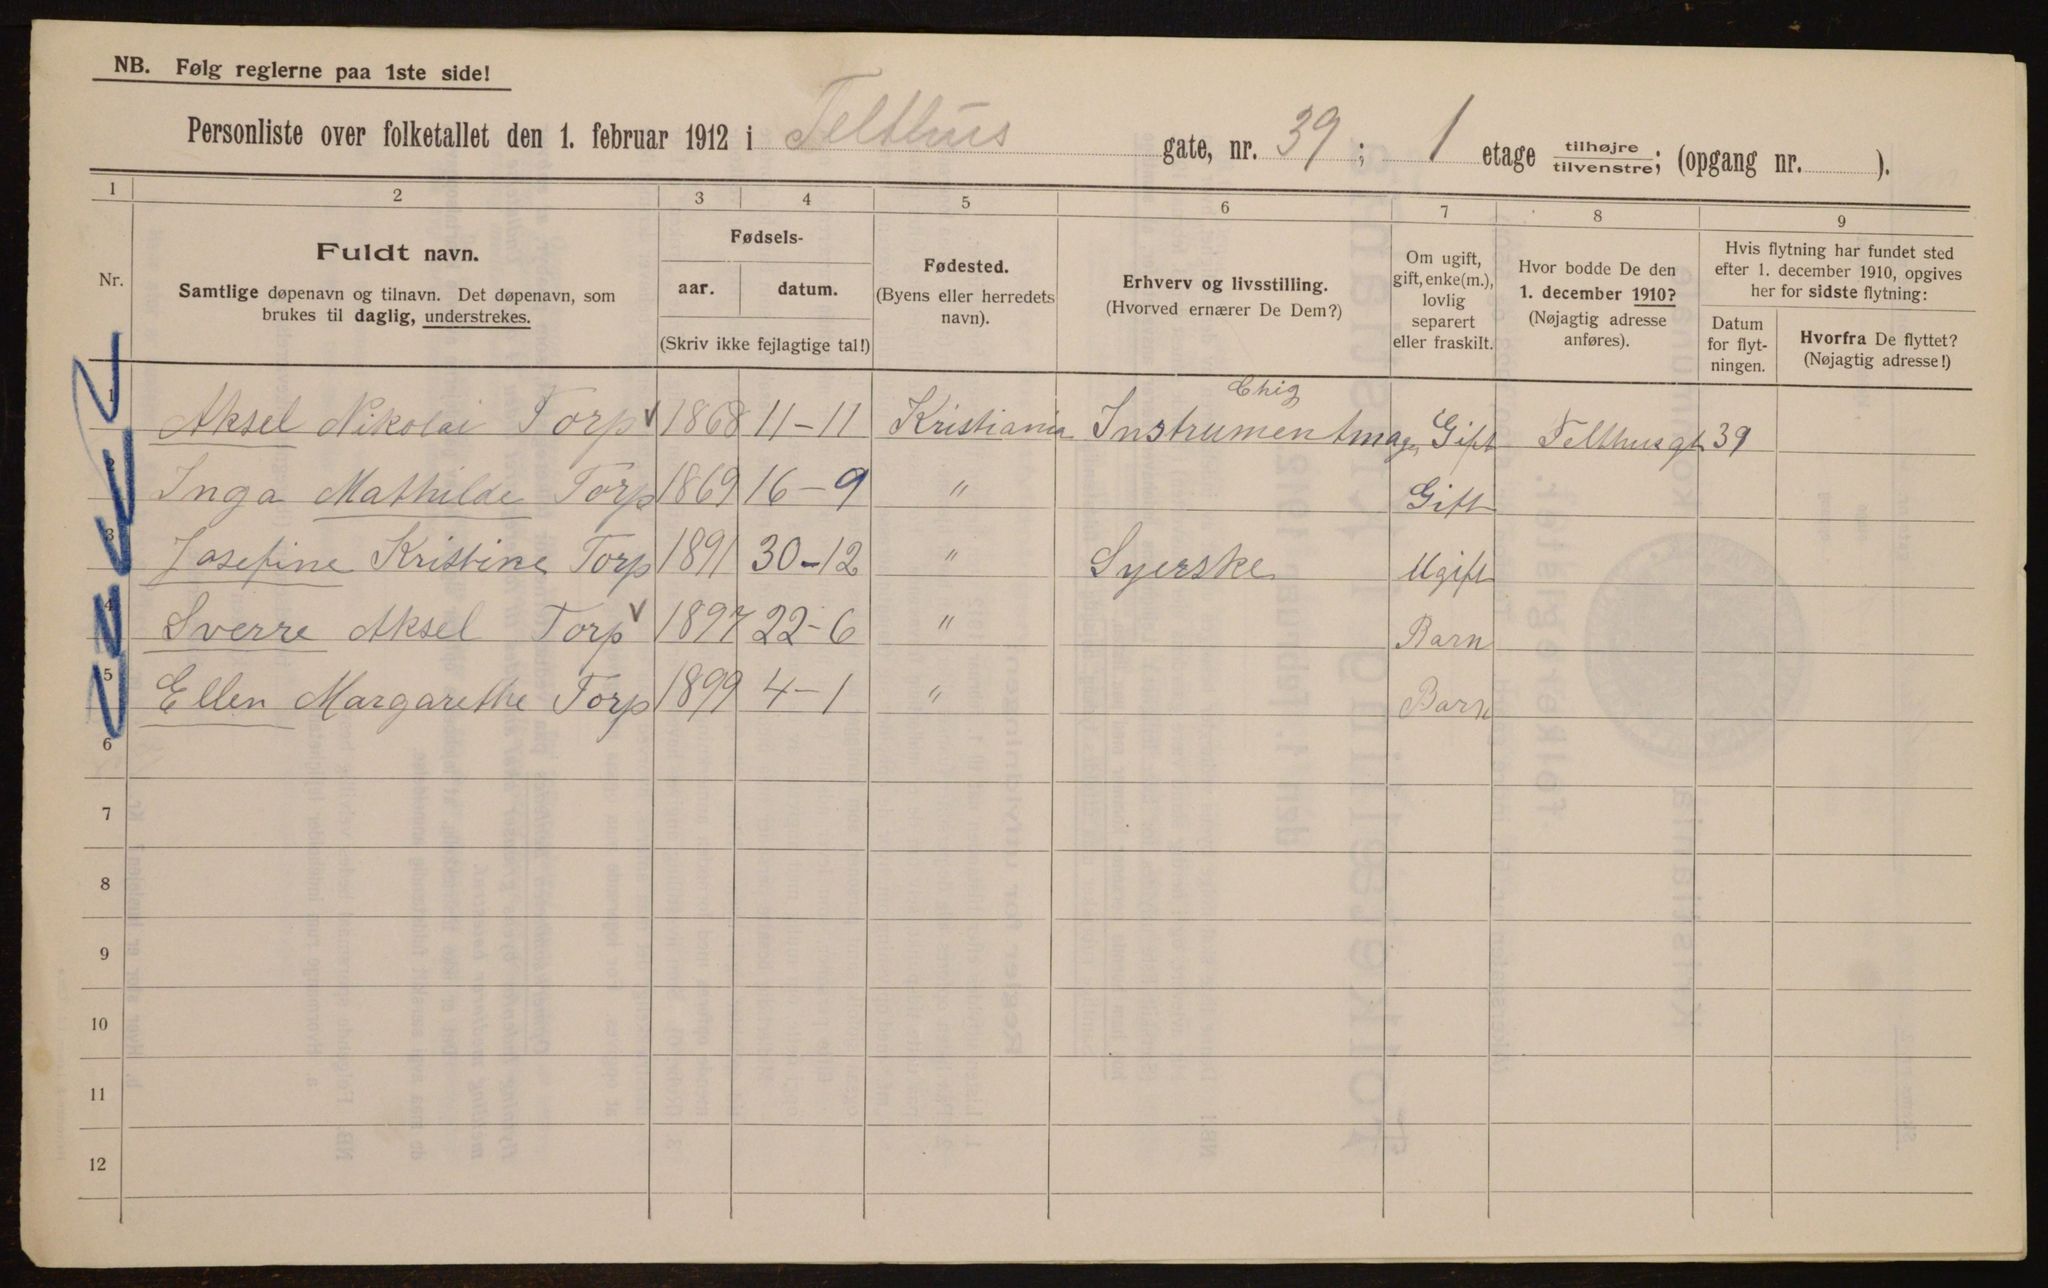 NB. Følg reglerne paa 1ste side!
Personliste over folketallet den 1. februar 1912 i Telthus gate, nr. 39; 1 etage tilhøjre/tilvenstre; (opgang nr. ).
1 2 3 4 5 6 7 8 9
Nr.
Fuldt navn.
Samtlige døpenavn og tilnavn. Det døpenavn, som
brukes til daglig, understrekes.
Fødsels-
aar. datum.
(Skriv ikke fejlagtige tal!)
Fødested.
(Byens eller herredets
navn).
Erhverv og livsstilling.
(Hvorved ernærer De Dem?)
Om ugift,
gift, enke(m.),
lovlig
separert
eller fraskilt.
Hvor bodde De den
1. december 1910?
(Nøjagtig adresse
anføres).
Hvis flytning har fundet sted
efter 1. december 1910, opgives
her for sidste flytning:
Datum
for flyt-
ningen.
Hvorfra De flyttet?
(Nøjagtig adresse!)
Chig
1 Aksel Nikolai Torp 1868 11-11 Kristiania Instrumentmag. Gift Telthusgt 39
2 Inga Mathilde Torp 1869 16-9 " Gift
3 Josefine Kristine Torp 1891 30-12 " Syerske Ugift
4 Sverre Aksel Torp 1897 22-6 " Barn
5 Ellen Margarethe Torp 1899 4-1 " Barn
6
7
8
9
10
11
12